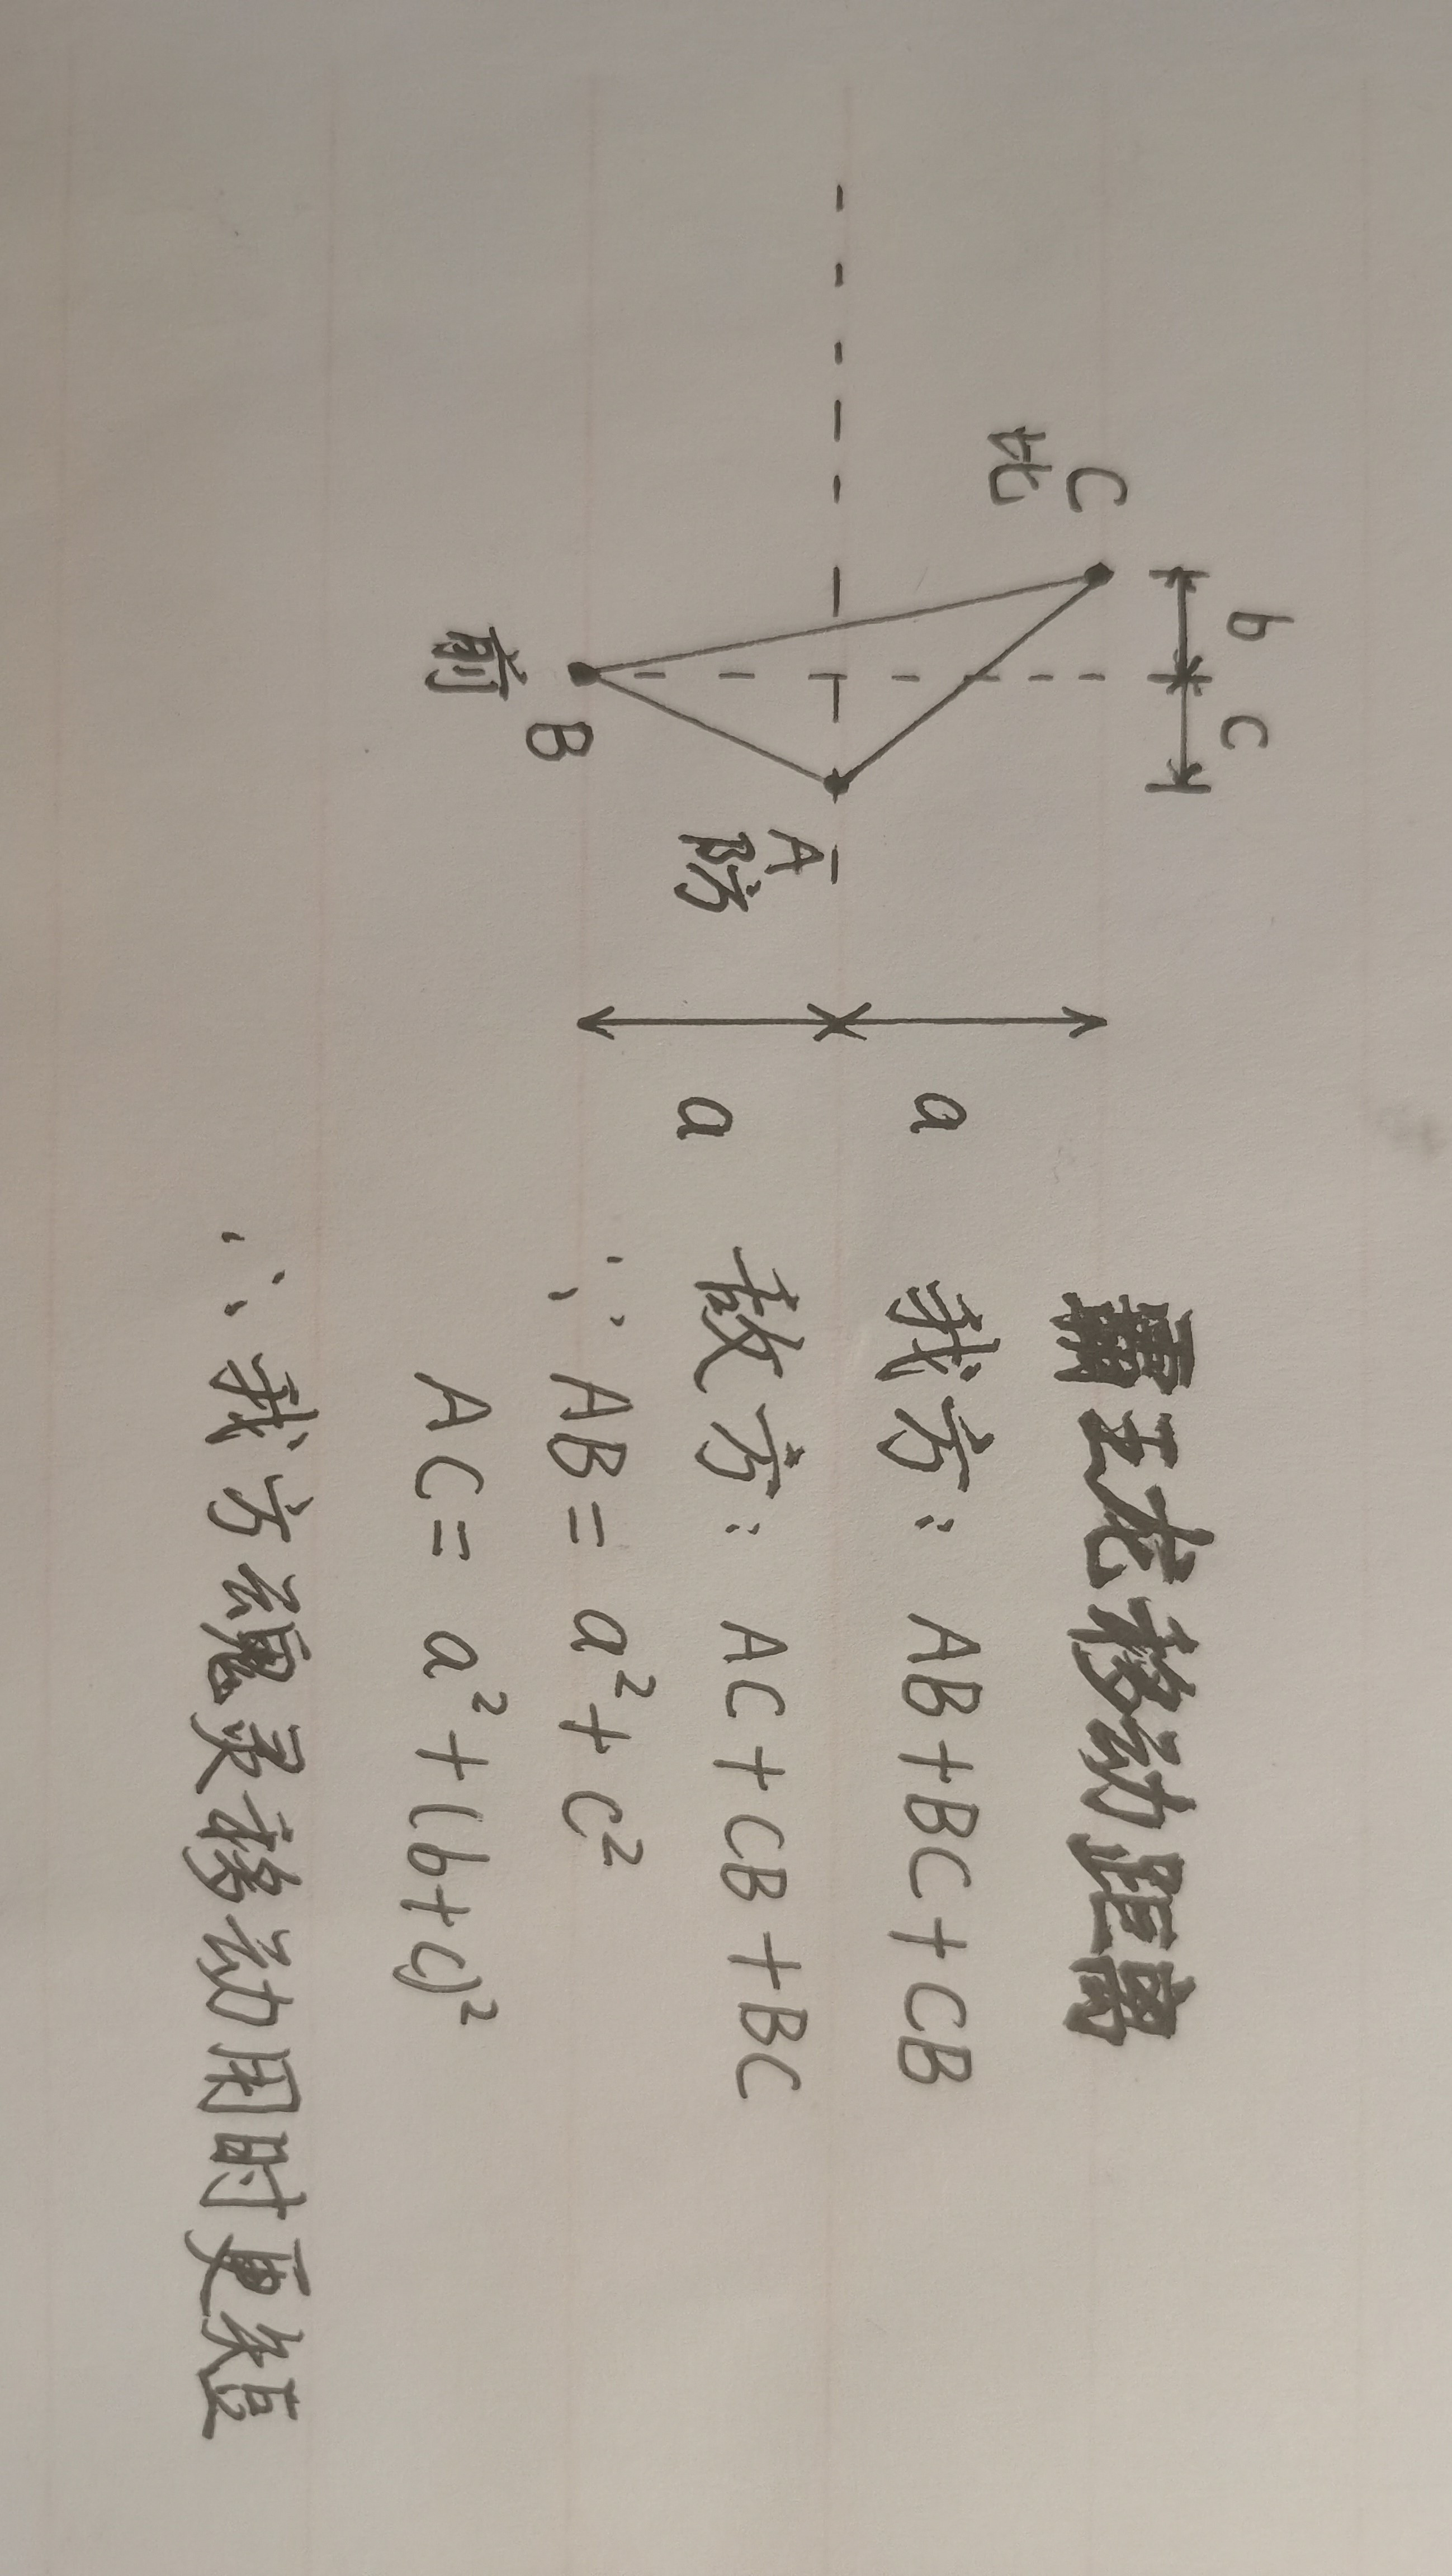 b
c
C
北
A
防
B
前
a
a
霸王龙移动距离
我方：AB+BC+CB
敌方：AC+CB+BC
∵ AB= a²+c²
AC= a²+(b+c)²
∴ 我方魂灵移动用时更短